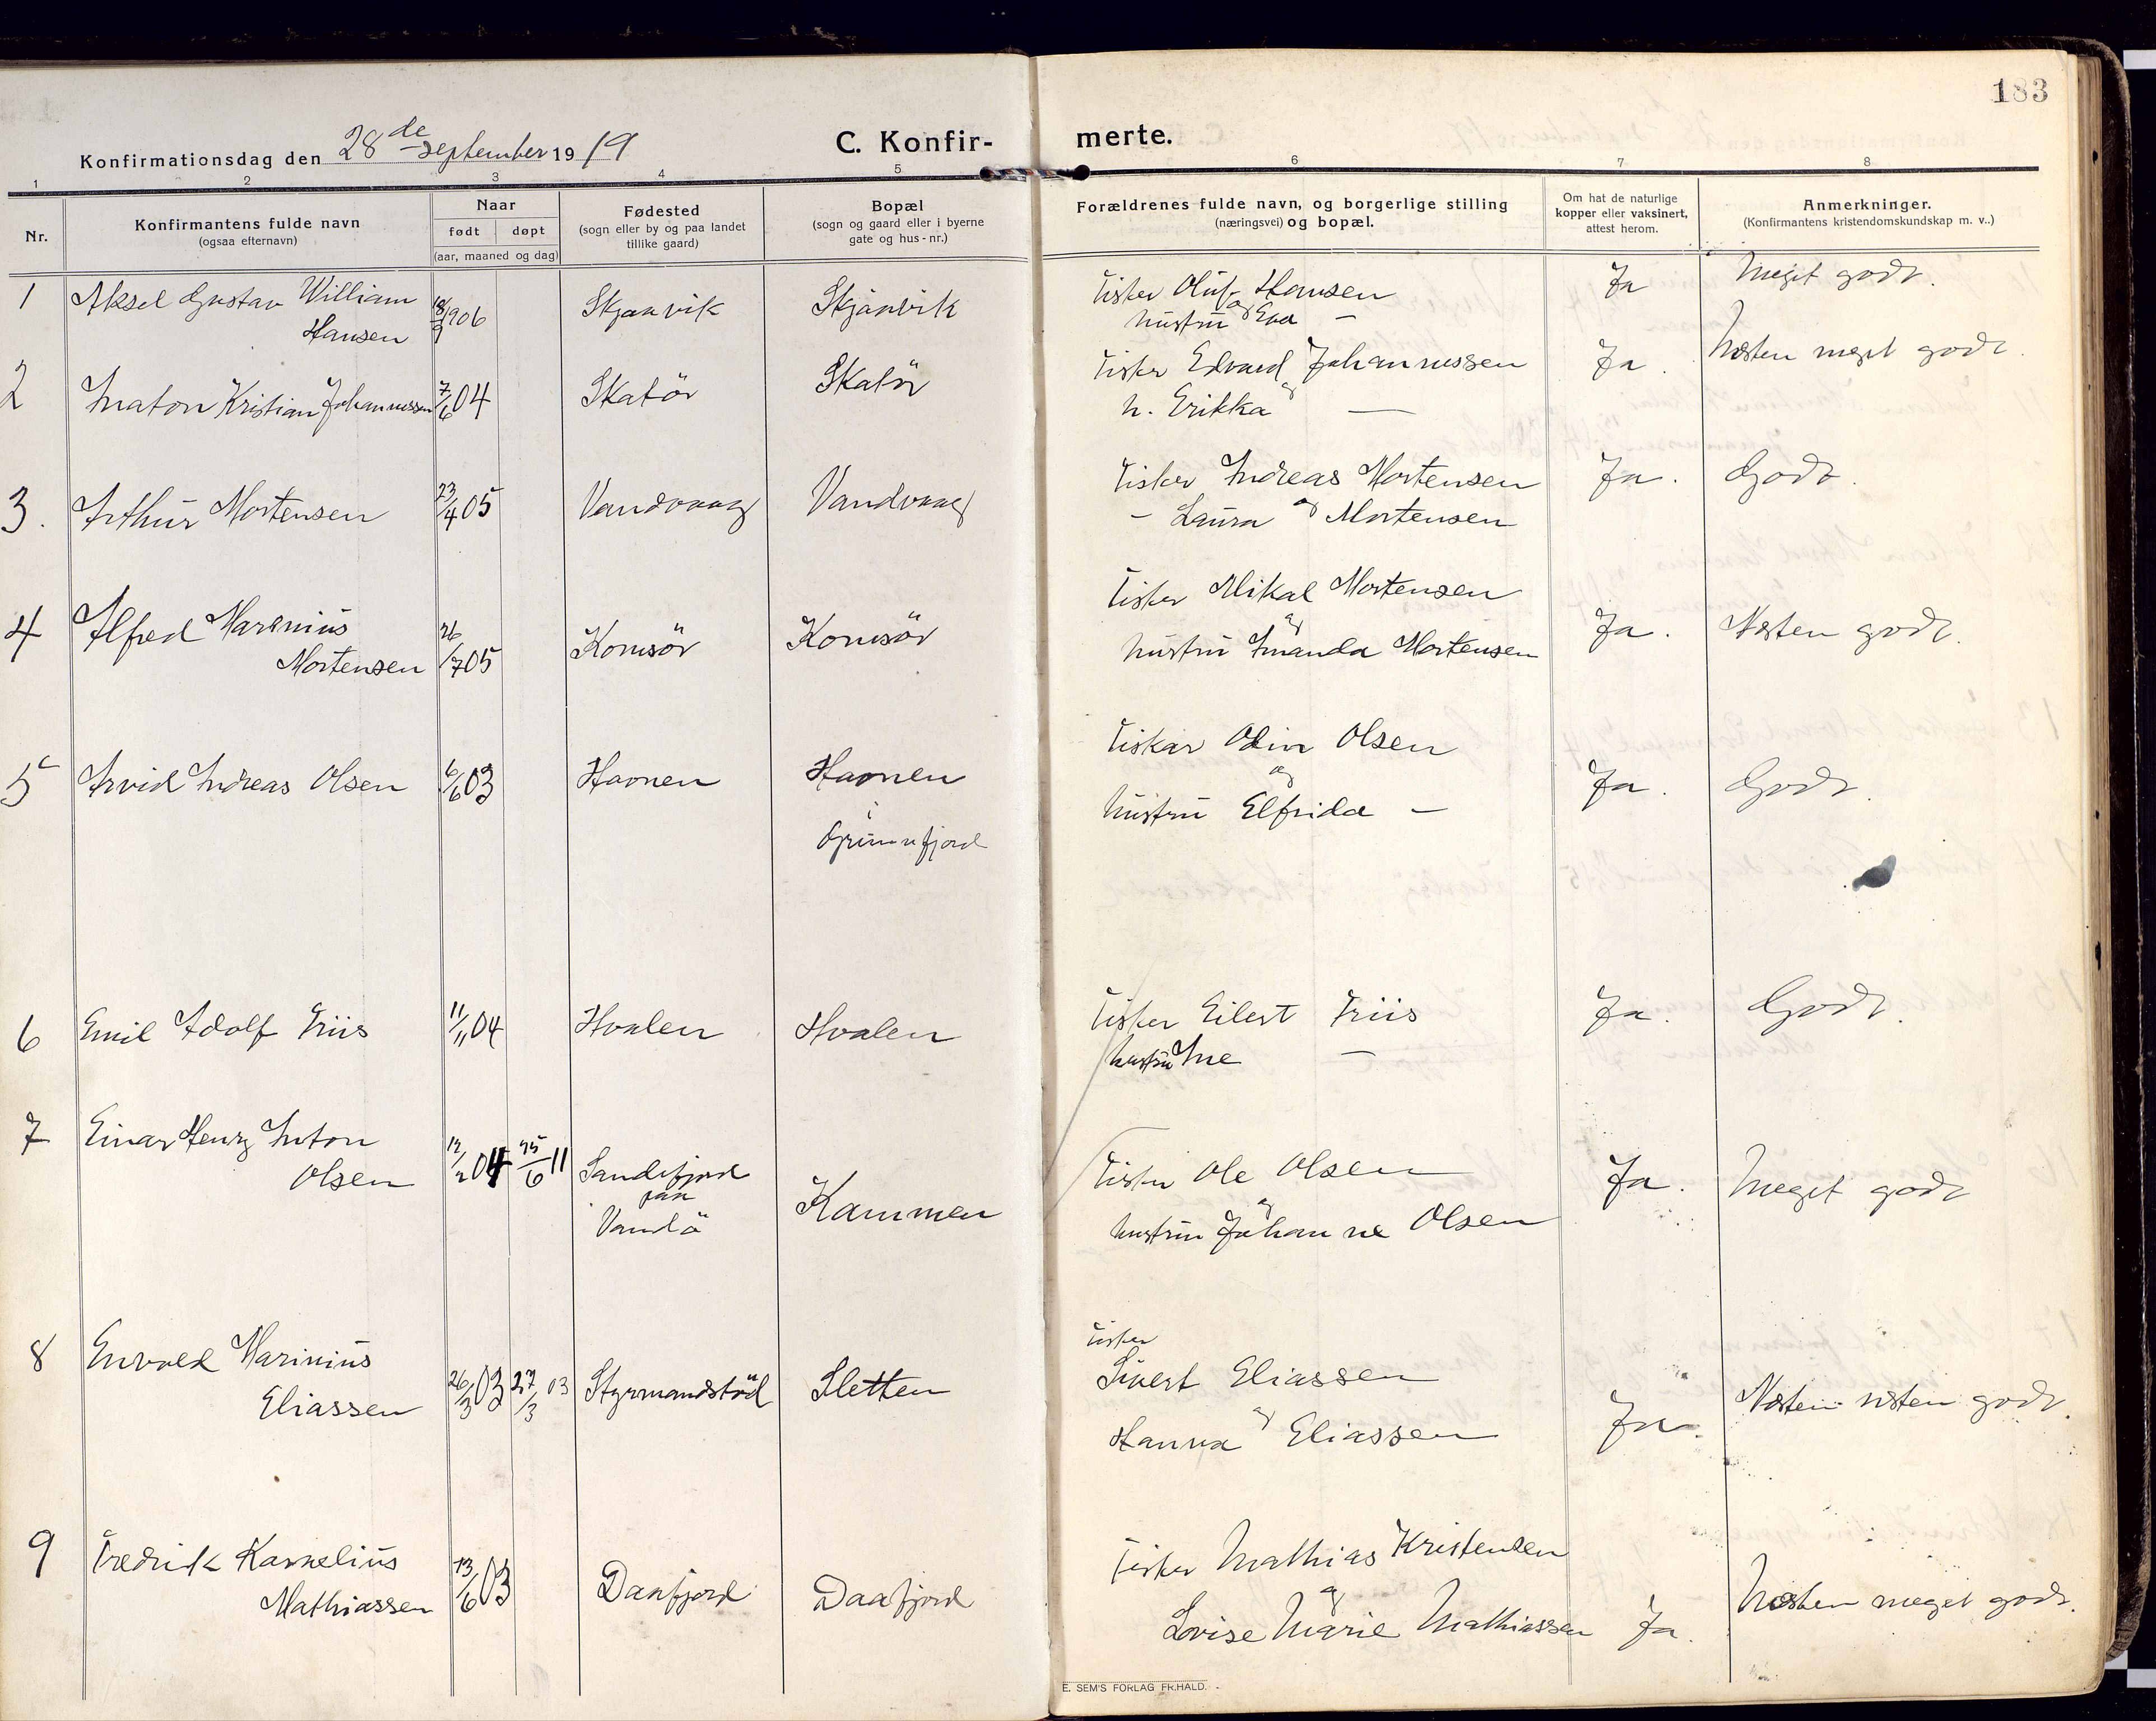 183
Konfirmationsdag den 28de september 1919
C. Konfir-
merte.
1 2 3 4 5 6 7 8
Nr.
Konfirmantens fulde navn
(ogsaa efternavn)
Naar
født døpt
(aar, maaned og dag)
Fødested
(sogn eller by og paa landet
tillike gaard)
Bopæl
(sogn og gaard eller i byerne
gate og hus-nr.)
Forældrenes fulde navn, og borgerlige stilling
(næringsvei) og bopæl.
Om hat de naturlige
kopper eller vaksinert,
attest herom.
Anmerkninger.
(Konfirmantens kristendomskundskap m. v.)
1 Aksel Gustav William 18/9 906 Skjaavik Skjåvik Fisker Oluf Hansen Ja Meget godt.
Hansen og hustru Eva —
2 Anton Kristian Johannessen 7/6 04 Skatør Skatör Fisker Edvard Johannessen Ja. Næsten meget godt.
og h. Erikka —
3. Arthur Mortensen 23/4 05 Vandvaag Vandvaag Fisker Andreas Mortensen Ja. Godt.
– Laura og Mortensen
4 Alfred Marenius 26/7 05 Komsör Komsör Fisker Mikal Mortensen Ja. Næsten godt.
Mortensen og hustru Amanda Mortensen
5 Arvid Andreas Olsen 6/6 03 Havnen Havnen Fisker Odin Olsen Ja. Godt.
i og
Grunnfjord hustru Elfrida —
6 Emil Adolf Friis 11/11 04 Hvalen Hvalen Fisker Eilert Friis Ja. Godt.
hustru Ane —
7 Einar Henry Anton 12/2 04 25/6 11 Sandefjord Kammen Fisker Ole Olsen Ja. Meget godt
Olsen paa og
Vandö hustru Johanne Olsen
8 Envold Marinius 26/3 03 27/3 03 Styrmandstöd Sletten Fisker
Eliassen Sivert Eliassen Ja. Næsten næsten godt.
Hanna og Eliassen
9 Fredrik Karnelius 13/6 03 Daafjord Daafjord Fisker Mathias Kristensen
Mathiassen og
Lovise Marie Mathiassen Ja. Næsten meget godt.
E. SEM'S FORLAG FR.HALD.